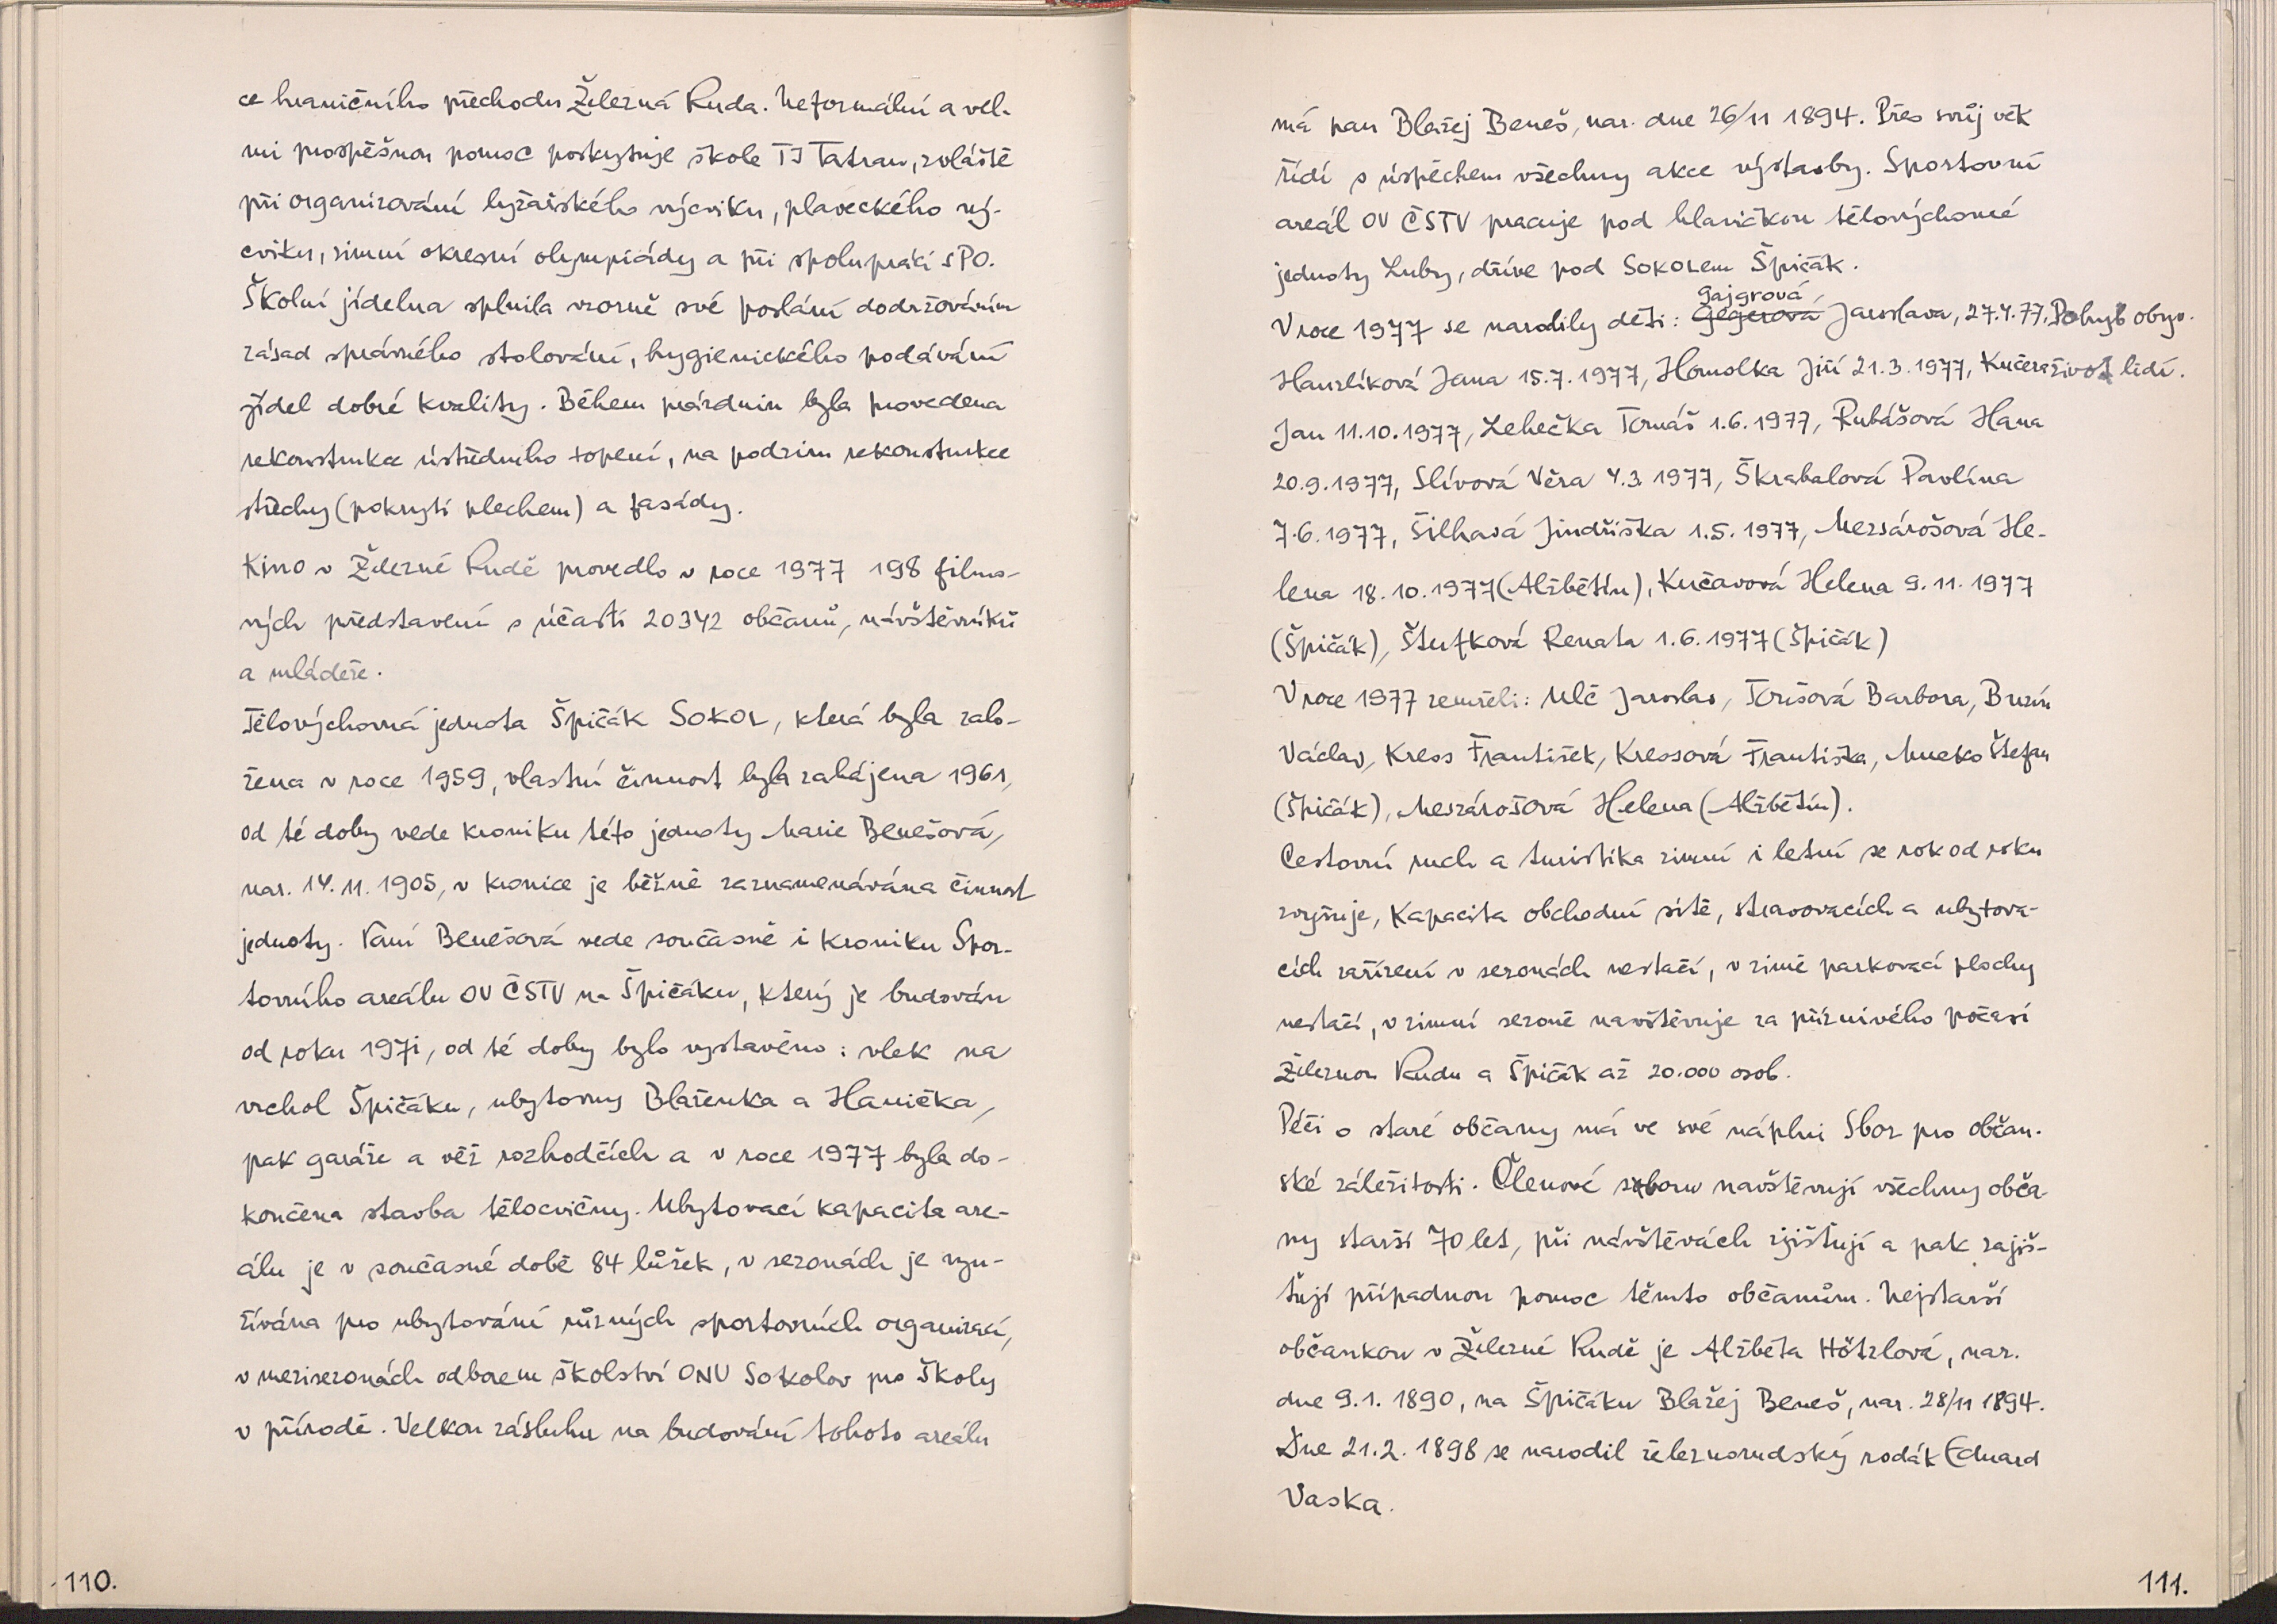 ce hraničního přechodu Železná Ruda. Neformální a vel-
mi prospěšnou pomoc poskytuje škole TJ Tatran, zvláště
při organizování lyžařského výcviku, plaveckého vý-
cviku, zimní okresní olympiády a při spolupráci s PO.
Školní jídelna splnila vzorně své poslání dodržováním
zásad správného stolování, hygienického podávání
jídel dobré kvality. Během prázdnin byla provedena
rekonstrukce ústředního topení, na podzim rekonstrukce
střechy (pokrytí plechem) a fasády.
Kino v Železné Rudě provedlo v roce 1977 198 filmo-
vých představení s účastí 20342 občanů, návštěvníků
a mládeže.
Tělovýchovná jednota Špičák SOKOL, která byla zalo-
žena v roce 1959, vlastní činnost byla zahájena 1961,
od té doby vede kroniku této jednoty Marie Benešová,
nar. 14.11.1905, v kronice je běžně zaznamenávána činnost
jednoty. Paní Benešová vede současně i kroniku Spor-
tovního areálu OV ČSTV na Špičáku, který je budován
od roku 1971, od té doby bylo vystavěno: vlek na
vrchol Špičáku, ubytovny Blaženka a Hanička,
pak garáže a věž rozhodčích a v roce 1977 byla do-
končena stavba tělocvičny. Ubytovací kapacita are-
álu je v současné době 84 lůžek, v sezonách je vyu-
žívána pro ubytování různých sportovních organizací,
v mezisezonách odborem školství ONV Sokolov pro školy
v přírodě. Velkou zásluhu na budování tohoto areálu
110.
má pan Blažej Beneš, nar. dne 26/11 1894. Přes svůj věk
řídí s úspěchem všechny akce výstavby. Sportovní
areál OV ČSTV pracuje pod hlavičkou tělovýchovné
jednoty Luby, dříve pod SOKOLEM Špičák.
Gajgrová
V roce 1977 se narodily děti: Gegerová Jaroslava, 27.4.77, Pohyb obyv.
Hanzlíková Jana 15.7.1977, Homolka Jiří 21.3.1977, Kučera život lidí.
Jan 11.10.1977, Lehečka Tomáš 1.6.1977, Rubášová Hana
20.9.1977, Slívová Věra 4.3 1977, Škrabalová Pavlína
7.6.1977, Šilhavá Jindřiška 1.5.1977, Mezsárošová He-
lena 18.10.1977 (Alžbětín), Kučavová Helena 9.11.1977
(Špičák), Štufková Renata 1.6.1977 (Špičák)
V roce 1977 zemřeli: Ulč Jaroslav, Torišová Barbora, Bruzin
Václav, Kress František, Kressová Františka, Mucko Štefan
(Špičák), Meszárošová Helena (Alžbětín).
Cestovní ruch a turistika zimní i letní se rok od roku
zvyšuje, kapacita obchodní sítě, stravovacích a ubytova-
cích zařízení v sezonách nestačí, v zimě parkovací plochy
nestačí, v zimní sezoně navštěvuje za příznivého počasí
Železnou Rudu a Špičák až 20.000 osob.
Péči o staré občany má ve své náplni Sbor pro občan-
ské záležitosti. Členové sboru navštěvují všechny obča-
ny starší 70 let, při návštěvách zjišťují a pak zajiš-
ťují případnou pomoc těmto občanům. Nejstarší
občankou v Železné Rudě je Alžběta Hötzlová, nar.
dne 9.1.1890, na Špičáku Blažej Beneš, nar. 28/11 1894.
Dne 21.2.1898 se narodil železnorudský rodák Eduard
Vaska.
111.